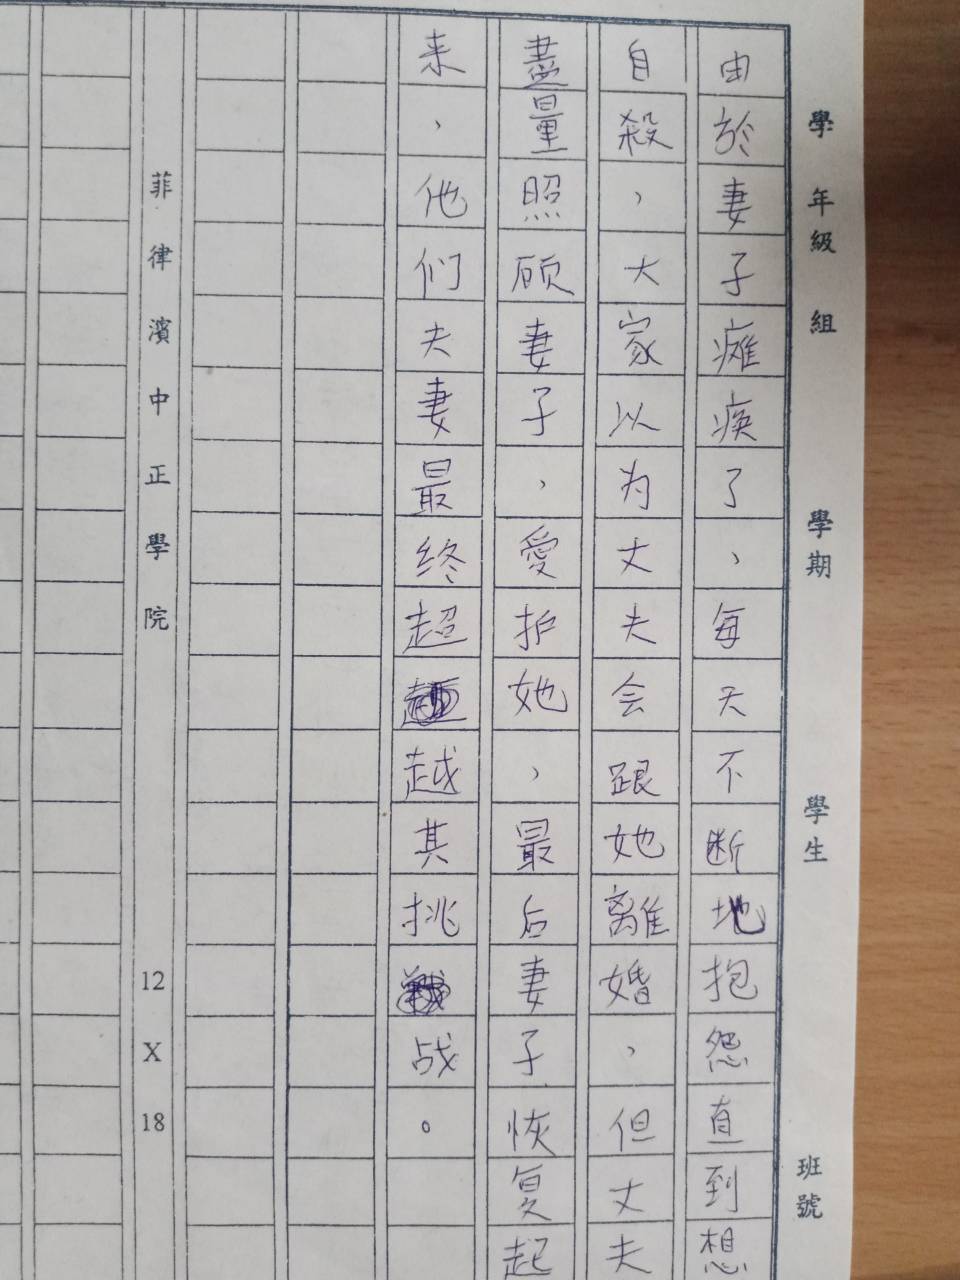 學 年級 組 學期 學生 班號
由於妻子瘫痪了，每天不断地抱怨直到想
自殺，大家以为丈夫会跟她離婚，但丈夫
盡量照顾妻子，愛护她，最后妻子恢复起
来，他们夫妻最终超越其挑战。
菲律濱中正學院 12 X 18